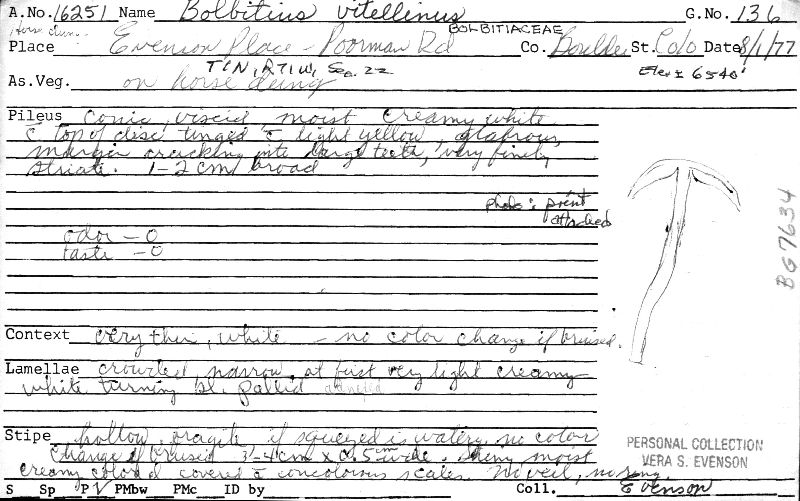 A.No. 16251 Name Bolbitius vitellinus G.No. 136
BOLBITIACEAE
Place Evenson Place - Poorman Rd Co. Boulder St. Colo Date 8/1/77
T1N, R71W, Sec. 22 Elev ± 6540'
As.Veg. on horse dung
Pileus Conic, viscid, moist creamy white
c̄ top of disc tinged c̄ light yellow, glabrous,
margin cracking into large teeth, very finely
striate. 1-2 cm broad
photo: print
attached
odor - 0
taste - 0
BG7634
Context very thin, white - no color change if bruised.
Lamellae crowded, narrow, at first very light creamy
white turning sl. pallid adnexed
Stipe hollow, fragile if squeezed is watery no color
change if bruised 3-4 cm x 0.5 cm wide. shiny moist
creamy colored covered c̄ concolorous scales. No veil, no ring.
PERSONAL COLLECTION
VERA S. EVENSON
S Sp P √ PMbw PMc ID by Coll. Evenson